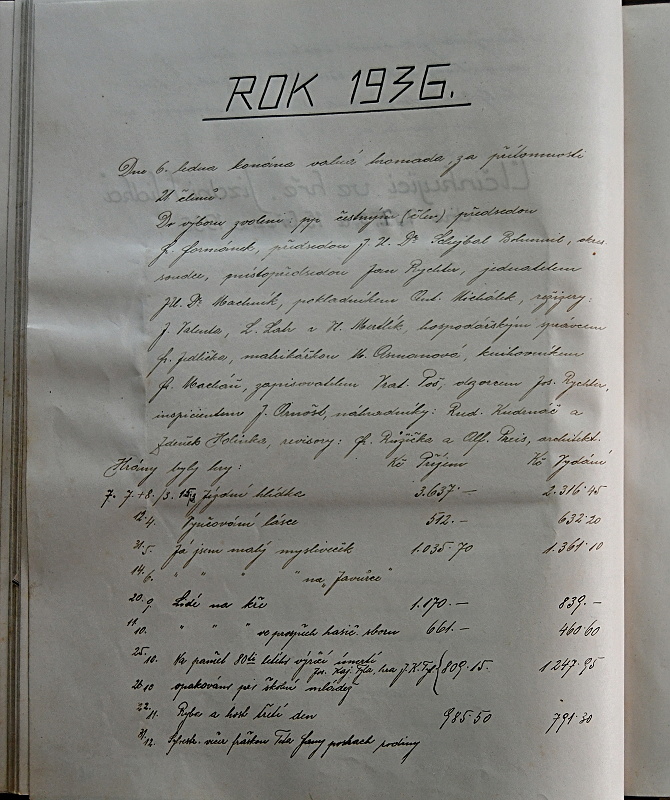 ROK 1936.
Dne 6. ledna konána valná hromada, za přítomnosti
21 členů
Do výboru zvoleni: pp. čestným (člen) předsedou
Fr. Formánek, předsedou J. U. Dr. Schejbal Bohumil, okres.
soudce, místopředsedou Jan Rychter, jednatelem
JU. Dr. Machník, pokladníkem Ant. Michálek, režiséry:
J. Valenta, L. Lahr a H. Mertlík, hospodářským správcem
Fr. Jedlička, matrikářkou M. Osmanová, knihovníkem
Fr. Machář, zapisovatelem Vrat. Poš, vlezorcem Jos. Rychter,
inspicientem J. Arnošt, náhradníky: Rud. Kudrnáč a
Zdeněk Holinka, revisory: Fr. Růžička a Alf. Preis, architekt.
Hrány byly hry: Kč Příjem Kč Vydání
7. 7.+8./3. 15/3 Jízdní hlídka 3.637·— 2.316·45
12/4. Vypůjčování lásce 512.— 632·20
31/5. Já jsem malý mysliveček 1.035·70 1.361·10
14./6. " " " " na „Javůrce"
20/9. Lidé na kře 1.170.— 839.—
11/10. " " " ve prospěch hasič. sboru 661.— 460·60
25/10. Na paměť 80ti letého výročí úmrtí
Jos. Kaj. Tyla, hra J. K. Tyl 809·15. 1247·95
26/10 opakováno pro školní mládež
22./11. Ryba a host třetí den 985·50 791·30
31/12. Sylvestr. více fraškou Teta Fany postrach rodiny